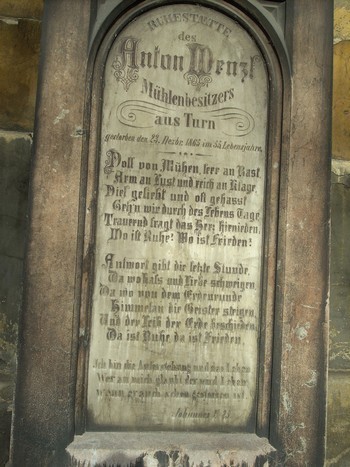 RUHESTÆTTE
des
Anton Wenzl
Mühlenbesitzers
aus Turn
gestorben den 23. Dezbr. 1865 im 55. Lebensjahre.
Voll von Mühen, leer an Rast
Arm an Lust und reich an Klage,
Viel geliebt und oft gehasst
Geh'n wir durch des Lebens Tage,
Trauernd fragt das Herz hienieden,
Wo ist Ruhe? Wo ist Frieden?
Antwort gibt die letzte Stunde,
Da wo Hass und Liebe schweigen,
Da wo von dem Erdenrunde
Himmelan die Geister steigen,
Und der Leib der Erde beschieden,
Da ist Ruhe, da ist Frieden.
Ich bin die Auferstehung und das Leben
Wer an mich glaubt der wird leben
wenn er auch schon gestorben ist
Johannes